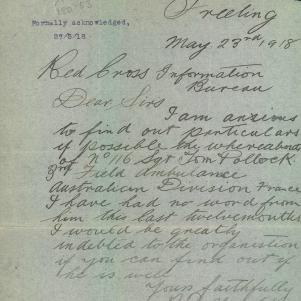 Formally acknowledged,
27/5/18
Freeling
May 23rd 1918
Red Cross Information
Bureau
Dear Sirs
I am anxious
to find out particulars
if possible the whereabouts
of No 116 Sgt Tom Pollock
3rd Field Ambulance
Australian Division France
I have had no word from
him this last twelvemonths
I would be greatly
indebted to the organisation
if you can find out if
he is well
Yours faithfully